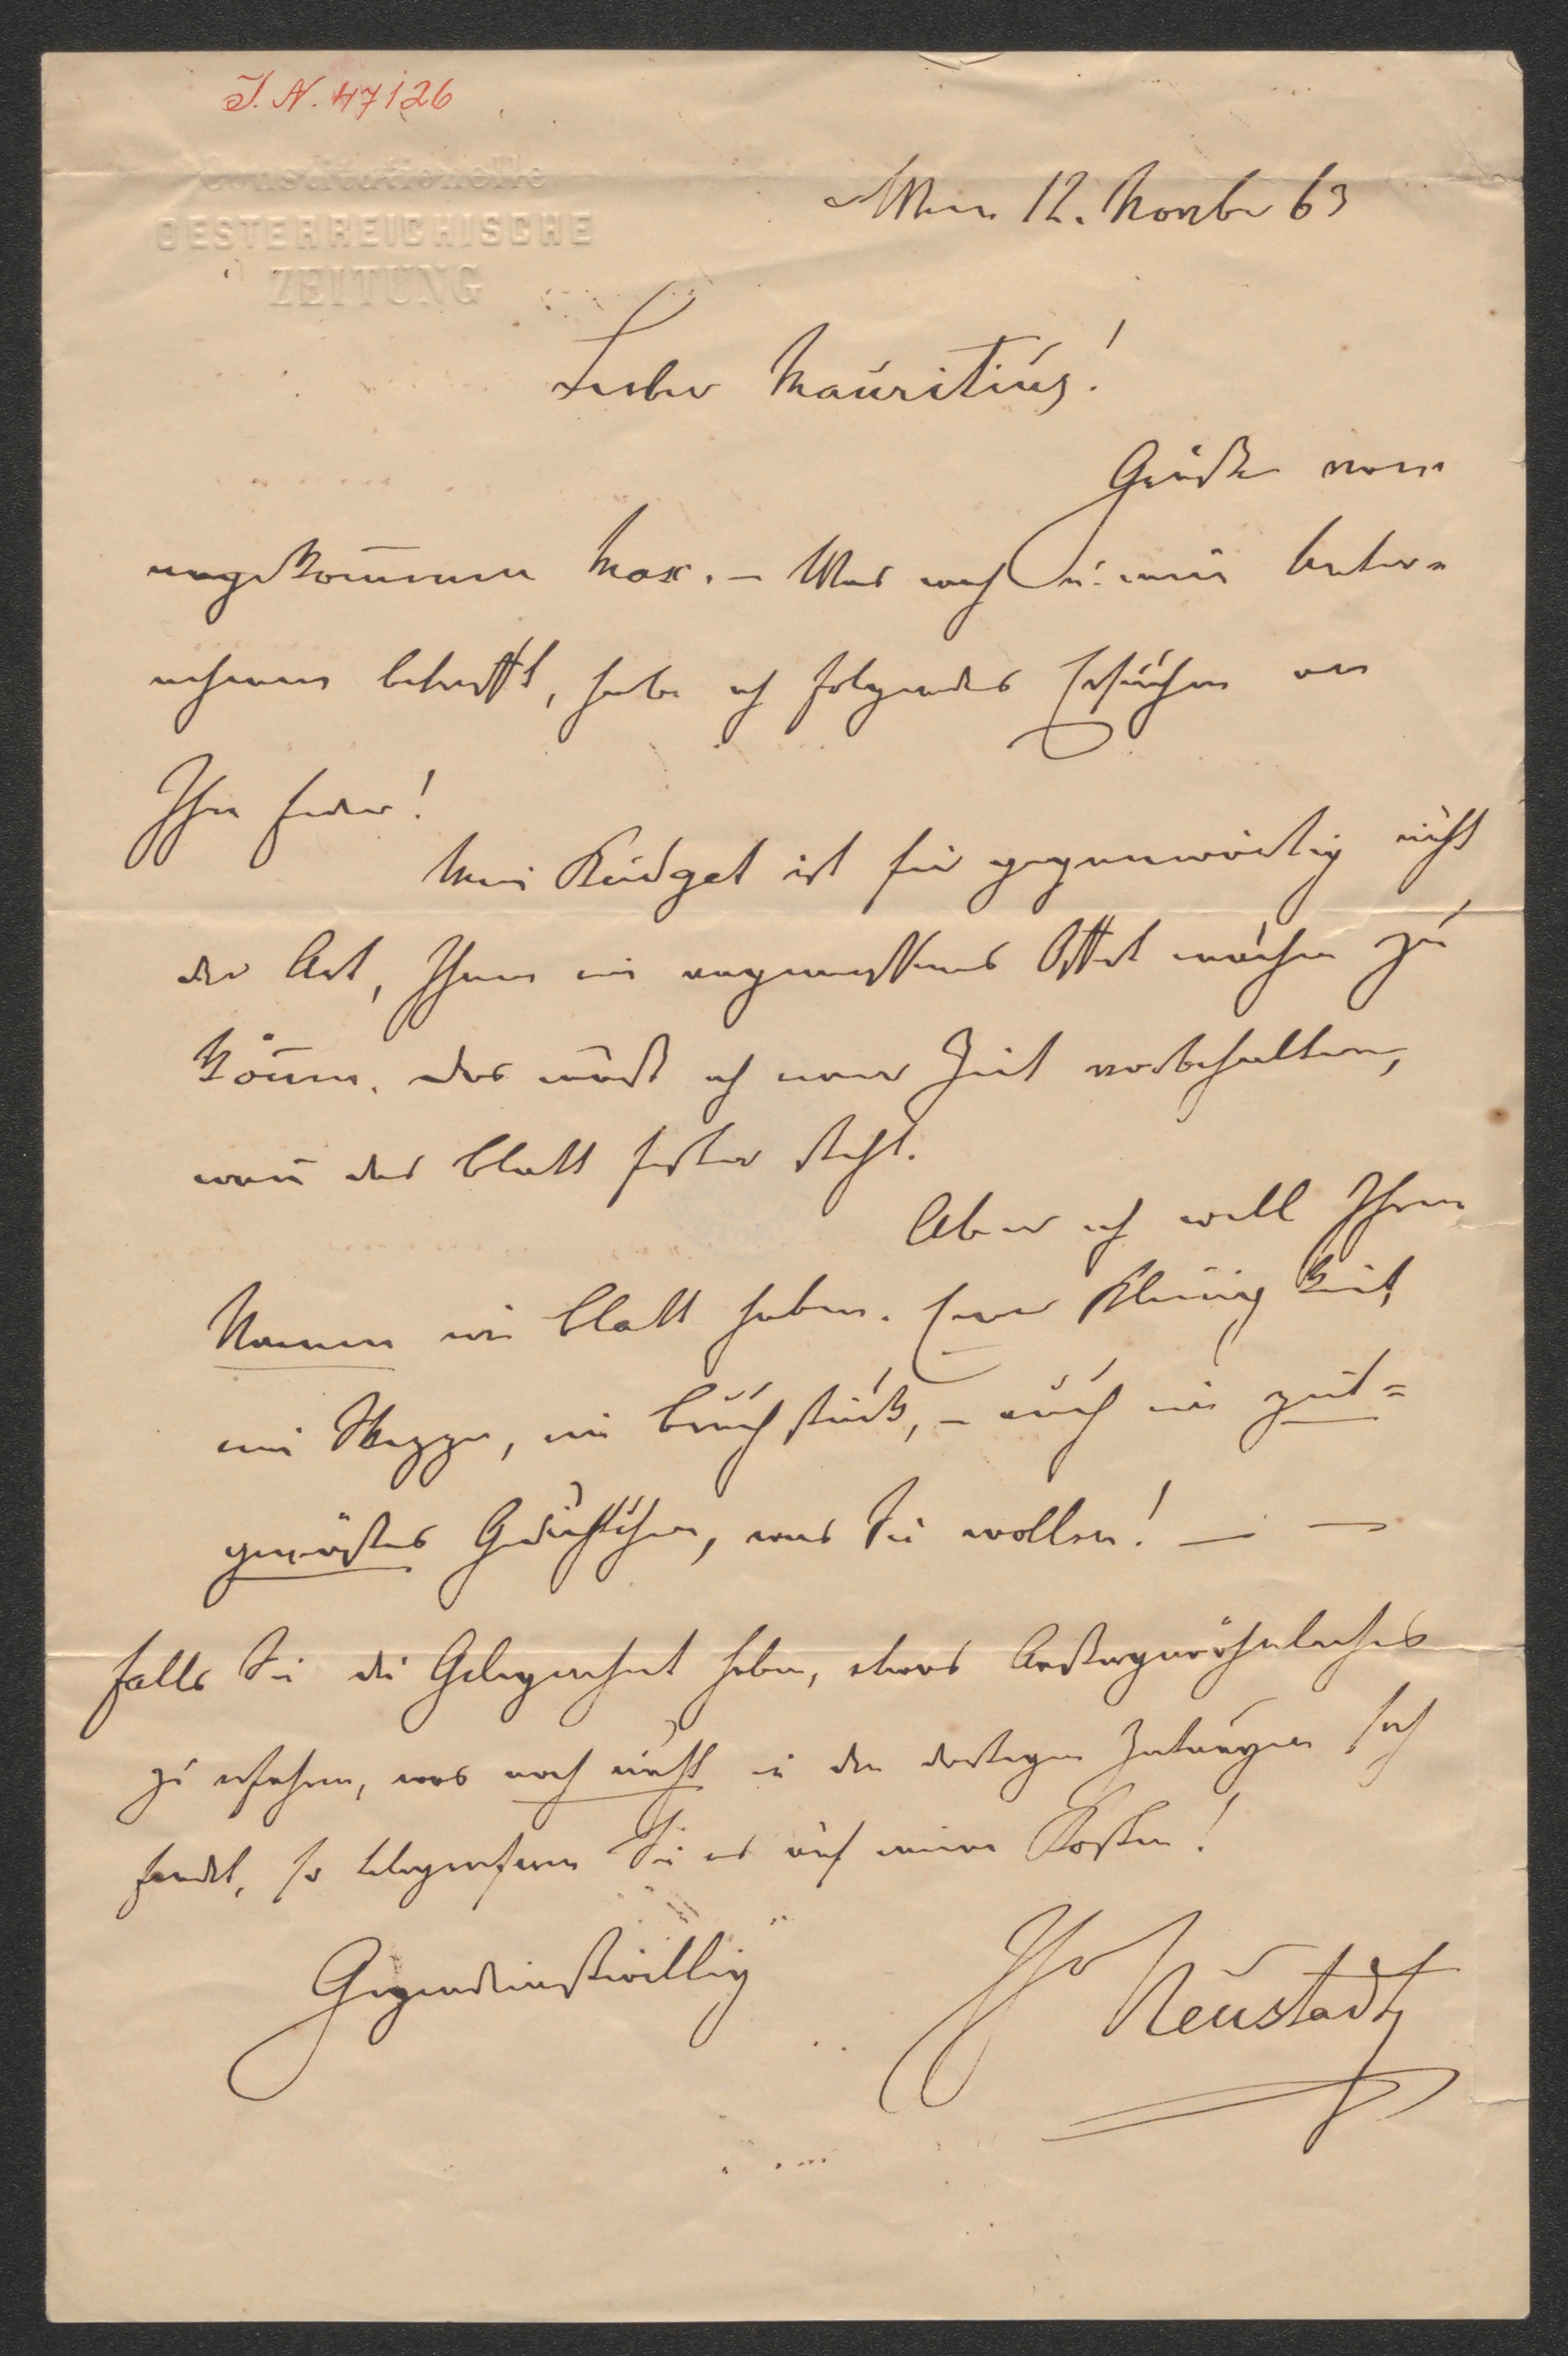 I. N. 47126
Constitutionelle
OESTERREICHISCHE
ZEITUNG
Wien 12. Novber 63
Lieber Mauritius!
Grüße vom
angekommenen Max. – Was mich u. mein Unter-
nehmen betrifft, habe ich folgendes Ersuchen an
Ihre Feder!
Mein Budget ist für gegenwärtig nicht
der Art, Ihnen ein angemessenes Offert machen zu
können. Das muß ich einer Zeit vorbehalten,
wenn das Blatt fester steht.
Aber ich will Ihren
Namen im Blatt haben. Eine Kleinigkeit,
eine Skizze, ein Bruchstück, – auch ein zeit-
gemäßes Gedichtchen, was Sie wollen! – –
Falls Sie die Gelegenheit haben, etwas Außergewöhnliches
zu erfahren, was noch nicht in den dortigen Zeitungen sich
findet, so telegrafieren Sie es auf meine Kosten!
Gegendienstwillig
Ihr Neustadt